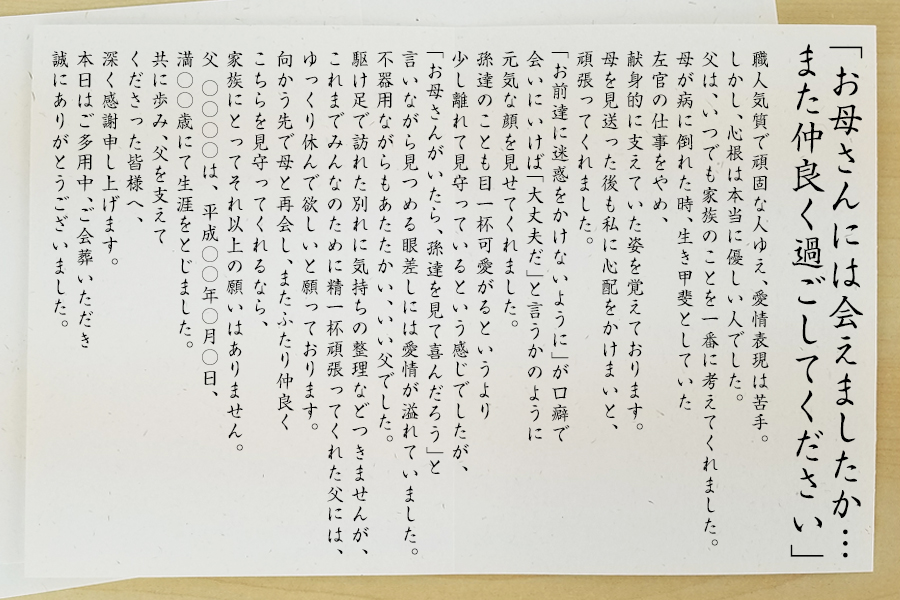 「お母さんには会えましたか…
また仲良く過ごしてください」
職人気質で頑固な人ゆえ、愛情表現は苦手。
しかし、心根は本当に優しい人でした。
父は、いつでも家族のことを一番に考えてくれました。
母が病に倒れた時、生き甲斐としていた
左官の仕事をやめ、
献身的に支えていた姿を覚えております。
母を見送った後も私に心配をかけまいと、
頑張ってくれました。
「お前達に迷惑をかけないように」が口癖で
会いにいけば「大丈夫だ」と言うかのように
元気な顔を見せてくれました。
孫達のことも目一杯可愛がるというより
少し離れて見守っているという感じでしたが、
「お母さんがいたら、孫達を見て喜んだろう」と
言いながら見つめる眼差しには愛情が溢れていました。
不器用ながらもあたたかい、いい父でした。
駆け足で訪れた別れに気持ちの整理などつきませんが、
これまでみんなのために精一杯頑張ってくれた父には、
ゆっくり休んで欲しいと願っております。
向かう先で母と再会し、またふたり仲良く
こちらを見守ってくれるなら、
家族にとってそれ以上の願いはありません。
父 〇〇〇〇は、平成〇〇年〇月〇日、
満〇〇歳にて生涯をとじました。
共に歩み、父を支えて
くださった皆様へ、
深く感謝申し上げます。
本日はご多用中、ご会葬いただき
誠にありがとうございました。